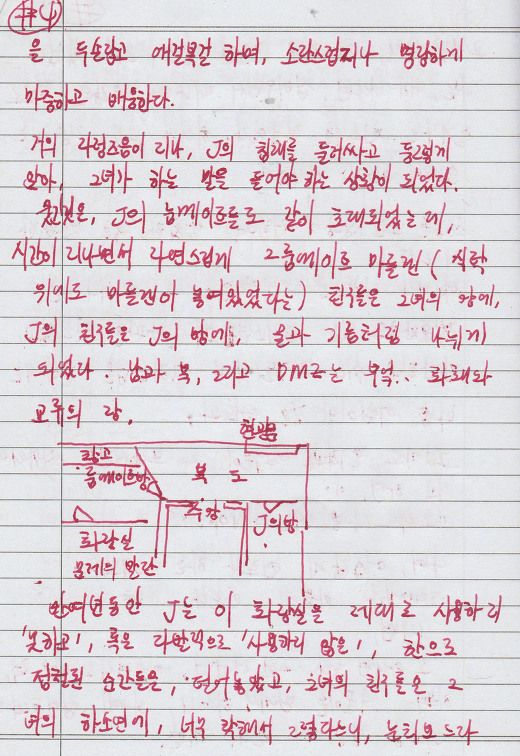 #4
을 두손잡고 애걸복걸 하며, 소란스럽지나 명랑하게
마중하고 배웅한다.
거의 자정즈음이 지나, J의 침대를 둘러싸고 둥그렇게
앉아, 그녀가 하는 말을 들어야 하는 상황이 되었다.
웃긴것은, J의 룸메이트들도 같이 초대되었는데,
시간이 지나면서 자연스럽게 그룸메이트 마들렌 (식탁
위에도 마들렌이 놓여있었다는) 친구들은 그녀의 방에,
J의 친구들은 J의 방에, 물과 기름처럼 나뉘게
되었다. 남과 북, 그리고 DMZ는 부엌.. 화해와
교류의 장.
현관문
창고
룸메이트방
복도
주방
J의방
화장실
문제의 발단
만여년동안 J는 이 화장실을 제대로 사용하지
'못하고', 혹은 자발적으로 '사용하지 않은', 한으로
점철된 순간들을, 털어놓았고, 그녀의 친구들은 그
녀의 하소연에, 너무 착해서 그렇다느니, 눈치보느라